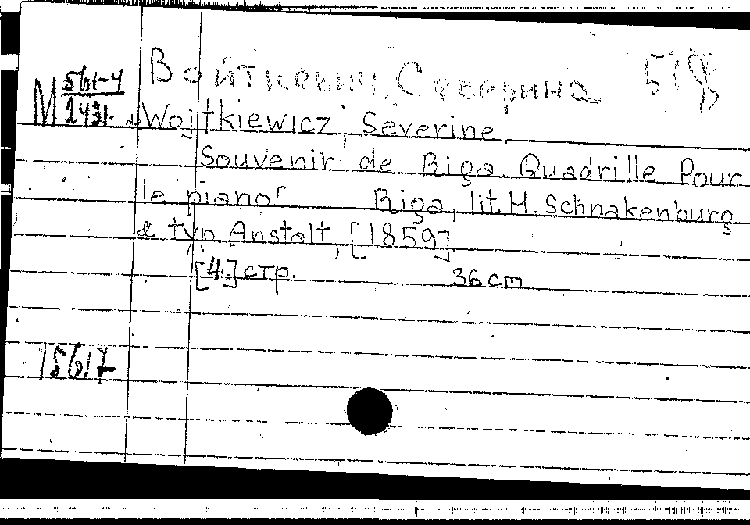 Войткевич, Северина 518
М 561-4
2431
Wojtkiewicz, Severine.
Souvenir de Riga. Quadrille Pour
le piano. Riga, lit. H. Schnakenburg
& typ. Anstalt, [1859]
[4] стр. 36 cm
15617